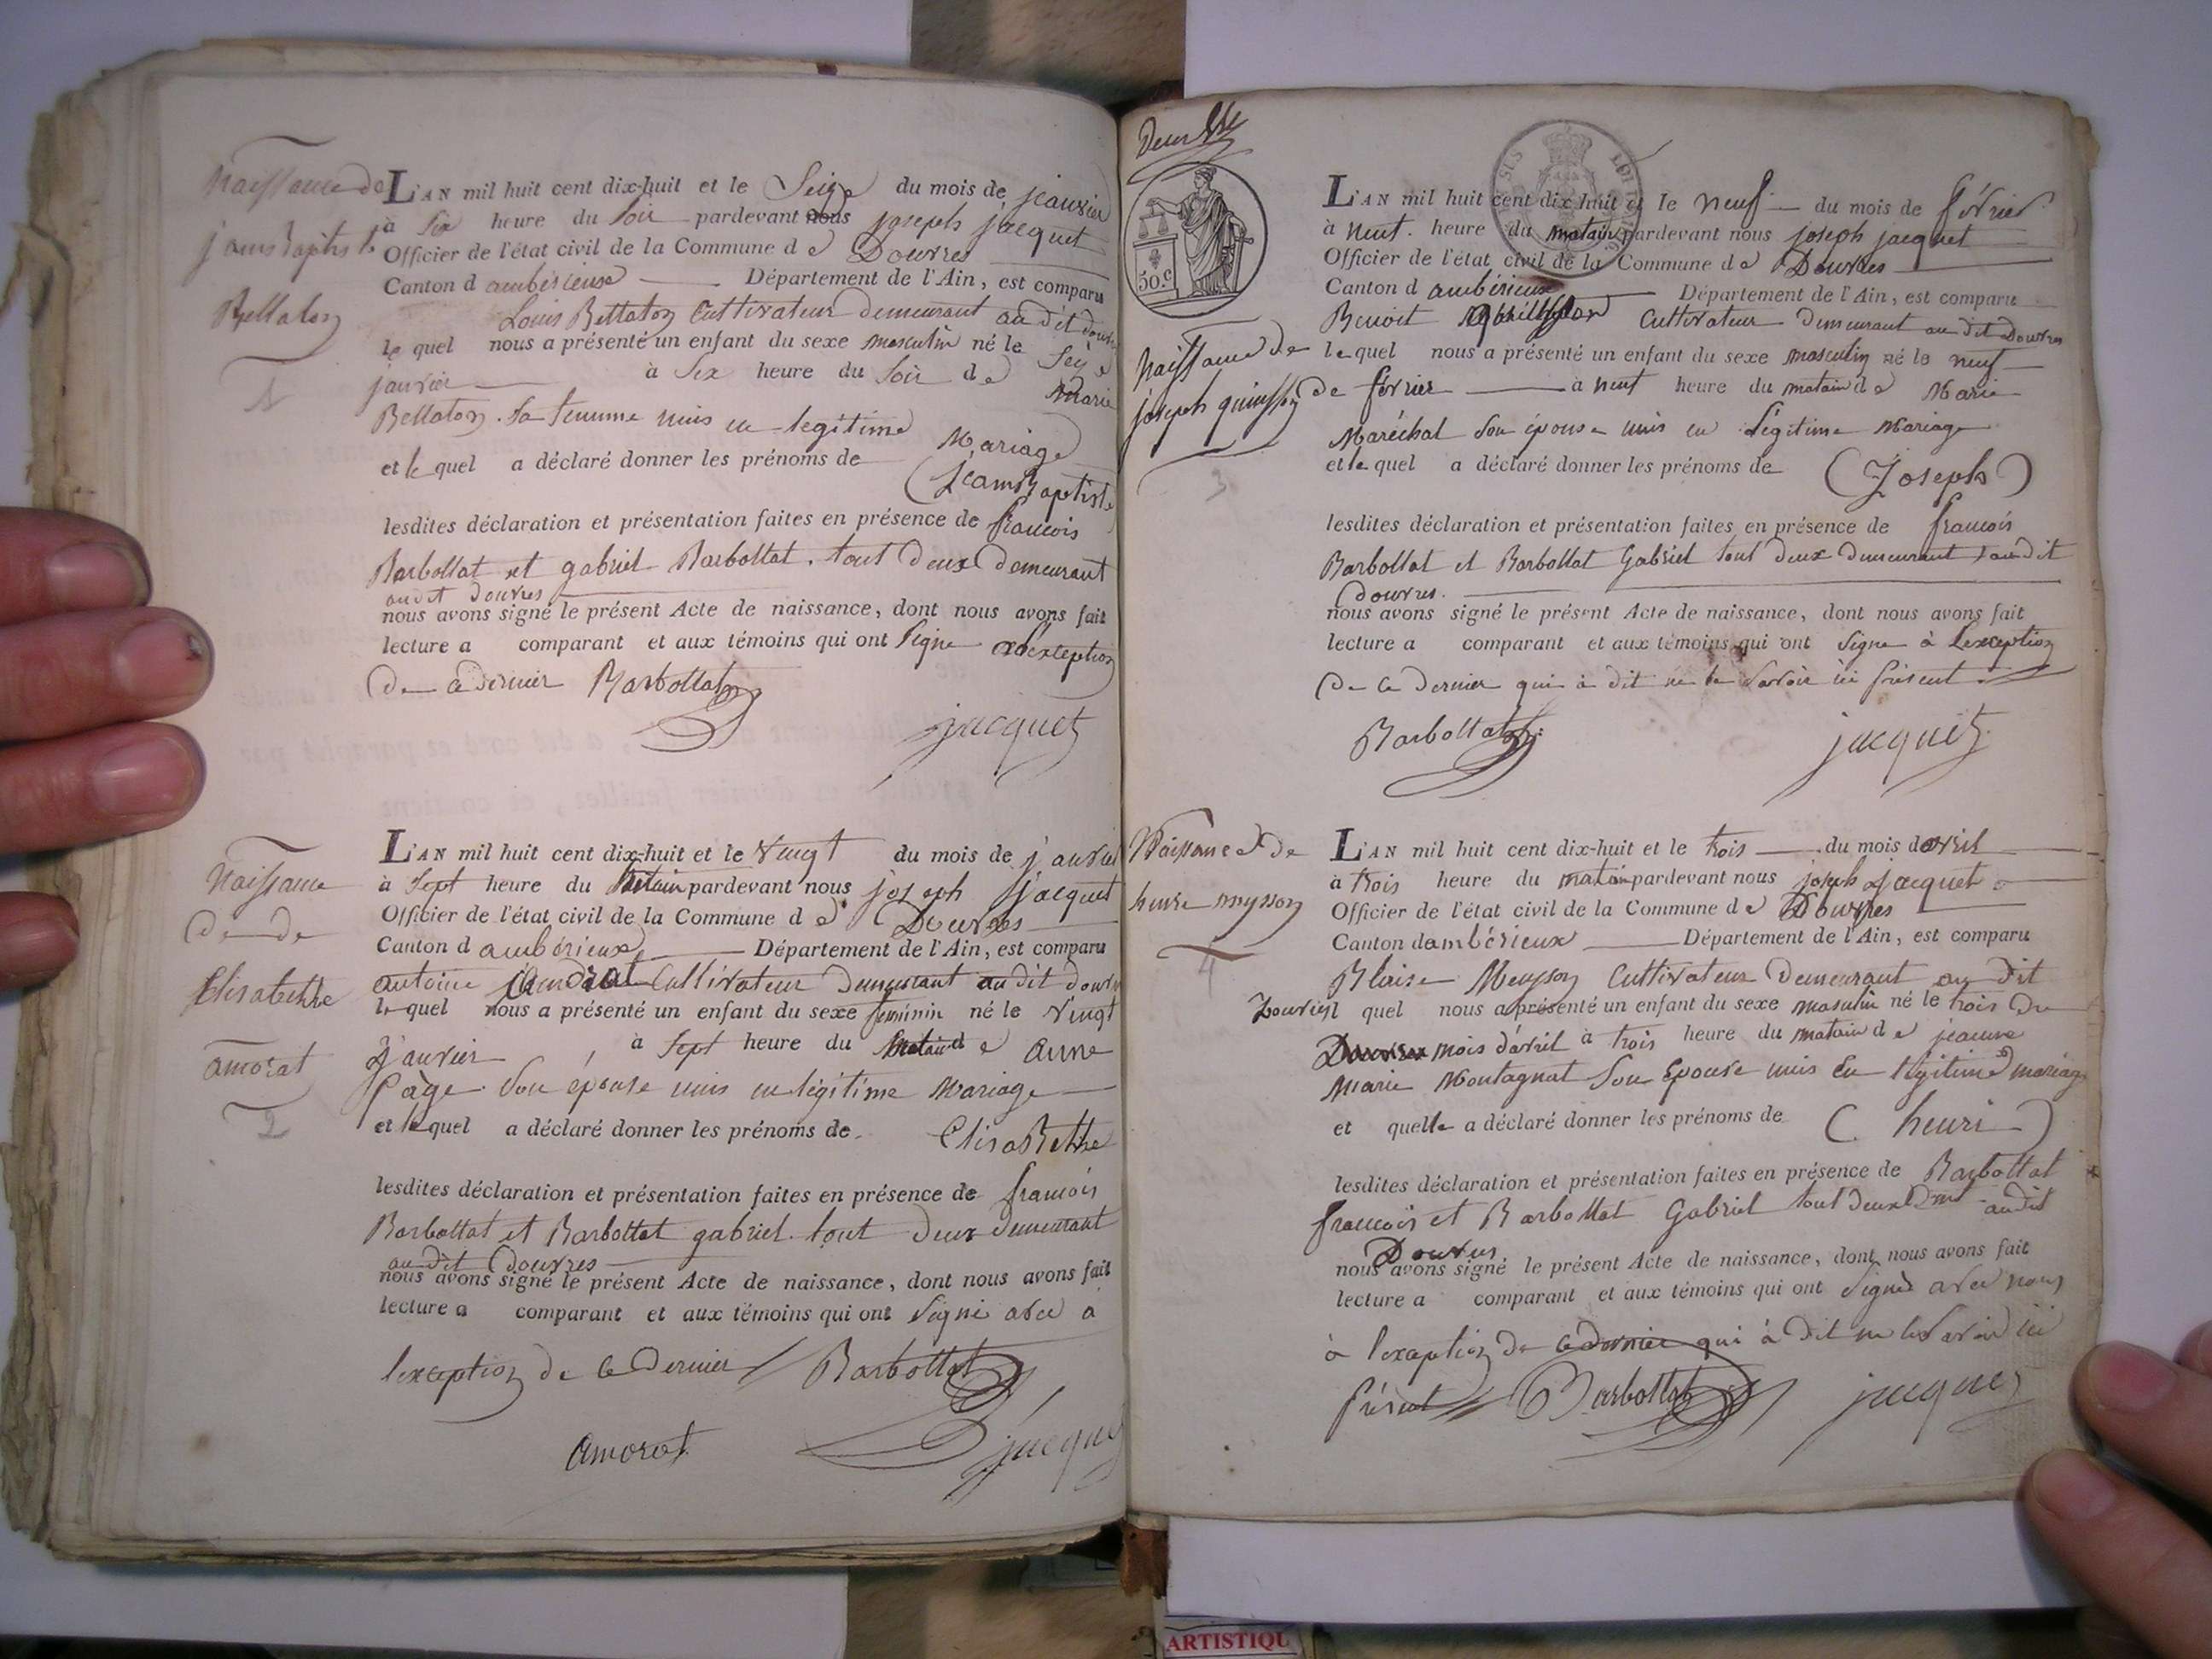 Naissance de
jeans Baptiste
Bellaton
1
L'AN mil huit cent dix-huit et le Seize du mois de jeanvier
à Six heure du Soir pardevant nous joseph jacquet
Officier de l'état civil de la Commune d e Douvres
Canton d ambérieux Département de l'Ain, est comparu
Louis Bellaton Cultivateur demeurant au dit douvres
le quel nous a présenté un enfant du sexe masculin né le Seize
janvier à Six heure du Soir d e Marie
Bellaton. Sa femme unis en legitime
Mariage
et le quel a déclaré donner les prénoms de
(Jeans Baptiste
lesdites déclaration et présentation faites en présence de francois
Barbollat et gabriel Barbollat. tout Deux Demeurant
au dit Douvres
nous avons signé le présent Acte de naissance, dont nous avons fait
lecture a comparant et aux témoins qui ont Signe a lexception
De ce dernier Barbollat
jacquet
Naissance
De de
Elisabethe
amorat
2
L'AN mil huit cent dix-huit et le Vingt du mois de janvier
à Sept heure du Matain pardevant nous joseph jacquet
Officier de l'état civil de la Commune d e Douvres
Canton d ambérieux Département de l'Ain, est comparu
antoine Cultivateur Demeurant au dit douvres
le quel nous a présenté un enfant du sexe feminin né le Vingt
Janvier à Sept heure du Matain d e anne
Page Son épouse unis en légitime Mariage
et le quel a déclaré donner les prénoms de
ElisaBethe
lesdites déclaration et présentation faites en présence de francois
Barbollat et Barbollat gabriel. tout Deux Demeurant
au dit Douvres
nous avons signé le présent Acte de naissance, dont nous avons fait
lecture a comparant et aux témoins qui ont Signé avec a
lexception de ce Dernier Barbollat
amorat jacquet
50.c
Naissance de
joseph quinsson
3
L'AN mil huit cent dix-huit et le neuf du mois de février
à neuf. heure du matain pardevant nous joseph jacquet
Officier de l'état civil de la Commune d e Douvres
Canton d ambérieux Département de l'Ain, est comparu
Benoit Cultivateur Demeurant au dit Douvres
le quel nous a présenté un enfant du sexe masculin né le neuf
de février à neuf heure du matain d e Marie
Maréchal Son épouse unis en Légitime Mariage
et le quel a déclaré donner les prénoms de (Joseph)
lesdites déclaration et présentation faites en présence de francois
Barbollat et Barbollat Gabriel tout deux Demeurant audit
Douvres.
nous avons signé le présent Acte de naissance, dont nous avons fait
lecture a comparant et aux témoins qui ont Signe à Lexception
De Ce Dernier qui à dit ne le Savoir
Barbollat jacquet
Naissance de
henri meysson
4
L'AN mil huit cent dix-huit et le trois du mois davril
à trois heure du matain pardevant nous joseph jacquet
Officier de l'état civil de la Commune d e Douvres
Canton dambérieux Département de l'Ain, est comparu
Blaise Meysson Cultivateur Demeurant au Dit
Douvres l quel nous a présenté un enfant du sexe masculin né le trois Du
mois davril à trois heure du matain d e jeanne
Marie Montagnat Son Epouse unis En légitime mariage
et quelle a déclaré donner les prénoms de (henri)
lesdites déclaration et présentation faites en présence de Barbollat
francois et Barbollat Gabriel tout Deux audit
Douvres
nous avons signé le présent Acte de naissance, dont nous avons fait
lecture a comparant et aux témoins qui ont Signés avec nous
à lexception De ce Dernier qui à Dit ne le Savoir
Barbollat jacquet
ARTISTIQU